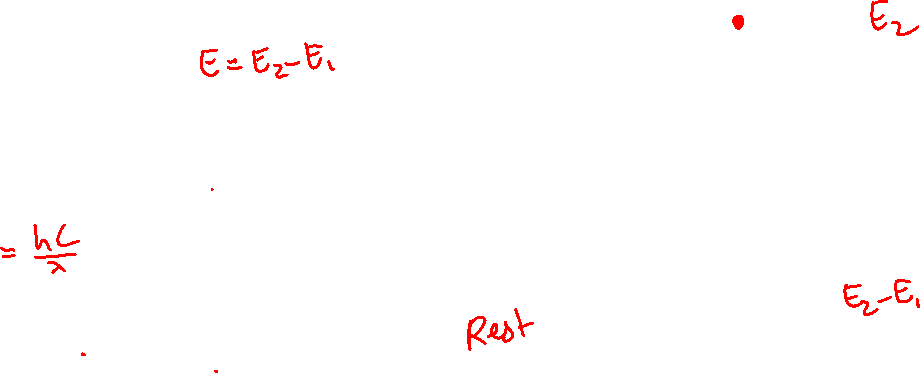 E₂
E = E₂ - E₁
= hc/λ
E₂ - E₁
Rest